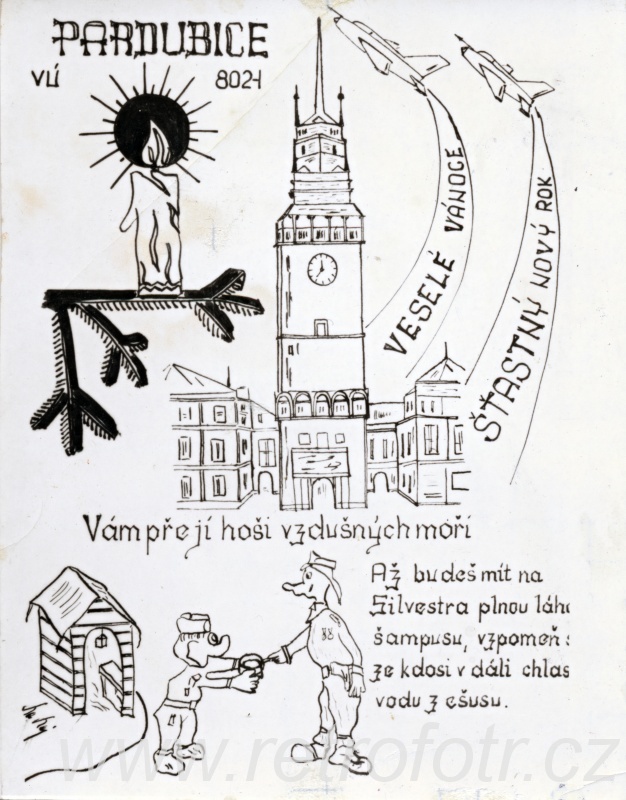 PARDUBICE
VÚ 8021
VESELÉ VÁNOCE
ŠŤASTNÝ NOVÝ ROK
Vám přejí hoši vzdušných moří
Až budeš mít na
Silvestra plnou
šampusu, vzpomeň
že kdosi v dáli chlas
vodu z ešusu.
88
www.retrofotr.cz